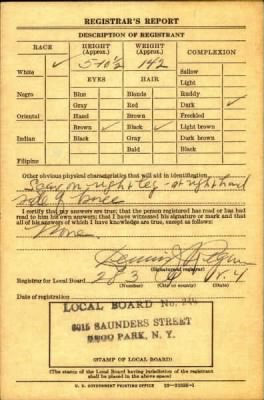 REGISTRAR'S REPORT
DESCRIPTION OF REGISTRANT
RACE HEIGHT (Approx.) WEIGHT (Approx.) COMPLEXION
White ✓ 5-10½ 142 Sallow
EYES HAIR Light
Negro Blue Blonde Ruddy
Gray Red Dark ✓
Oriental Hazel Brown Freckled
Brown ✓ Black ✓ Light brown
Indian Black Gray Dark brown
Bald Black
Filipino
Other obvious physical characteristics that will aid in identification
Scar on right leg - at right hand
side of knee
I certify that my answers are true; that the person registered has read or has had
read to him his own answers; that I have witnessed his signature or mark and that
all of his answers of which I have knowledge are true, except as follows:
None
(Signature of registrar)
Registrar for Local Board
(Number) (City or county) (State)
Date of registration
LOCAL BOARD No.
6015 SAUNDERS STREET
REGO PARK, N. Y.
(STAMP OF LOCAL BOARD)
(The stamp of the Local Board having jurisdiction of the registrant
shall be placed in the above space)
U. S. GOVERNMENT PRINTING OFFICE